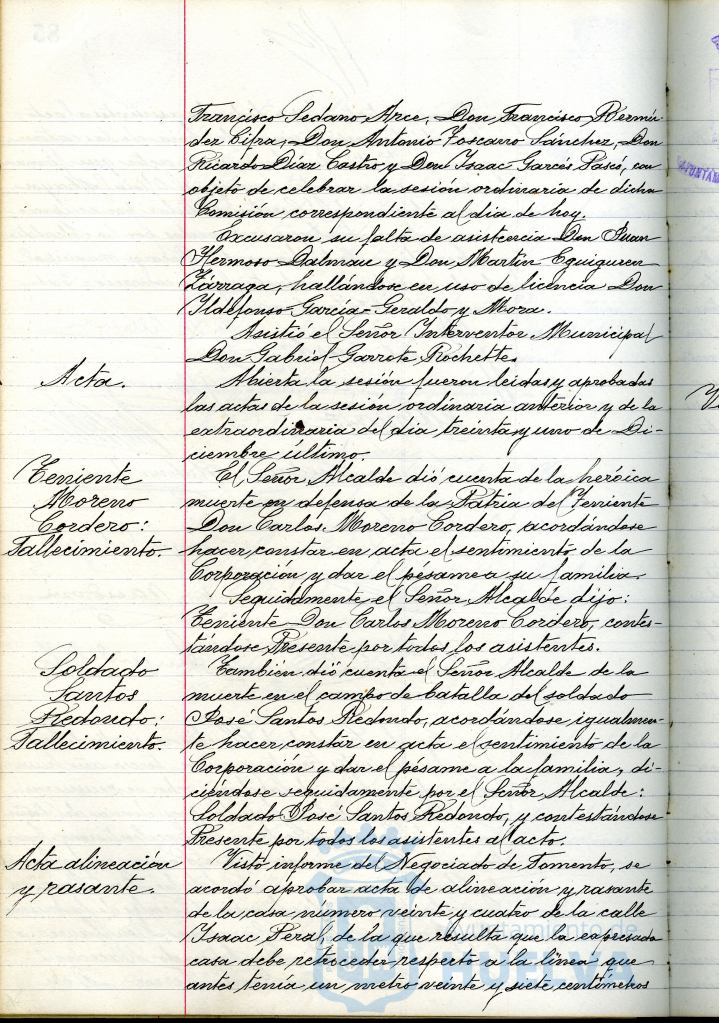 Francisco Sedano Arce, Don Francisco Bermú-
dez Cifra, Don Antonio Toscano Sánchez, Don
Ricardo Díaz Castro y Don Isaac Garcés Pascó, con
objeto de celebrar la sesión ordinaria de dicha
Comisión correspondiente al dia de hoy.
Excusaron su falta de asistencia Don Juan
Hermoso Dalmau y Don Martín Eguiguren
Zárraga, hallándose en uso de licencia Don
Ildefonso García-Geraldo y Mora.
Asistió el Señor Interventor Municipal
Don Gabriel Garrote Rochette.
Acta.
Abierta la sesión fueron leidas y aprobadas
las actas de la sesión ordinaria anterior y de la
extraordinaria del dia treinta y uno de Di-
ciembre último.
Teniente
Moreno
Cordero:
Fallecimiento.
El Señor Alcalde dió cuenta de la heróica
muerte en defensa de la Patria del Teniente
Don Carlos Moreno Cordero, acordándose
hacer constar en acta el sentimiento de la
Corporación y dar el pésame a su familia.
Seguidamente el Señor Alcalde dijo:
Teniente Don Carlos Moreno Cordero, contes-
tándose Presente por todos los asistentes.
Soldado
Santos
Redondo:
Fallecimiento.
También dió cuenta el Señor Alcalde de la
muerte en el campo de batalla del soldado
José Santos Redondo, acordándose igualmen-
te hacer constar en acta el sentimiento de la
Corporación y dar el pésame a la familia, di-
ciéndose seguidamente por el Señor Alcalde:
Soldado José Santos Redondo, y contestándose
Presente por todos los asistentes al acto.
Acta alineación
y rasante.
Visto informe del Negociado de Fomento, se
acordó aprobar acta de alineación y rasante
de la casa número veinte y cuatro de la calle
Isaac Peral, de la que resulta que la expresada
casa debe retroceder respecto a la línea que
antes tenía un metro veinte y siete centímetros
Ayuntamiento de
HUELVA